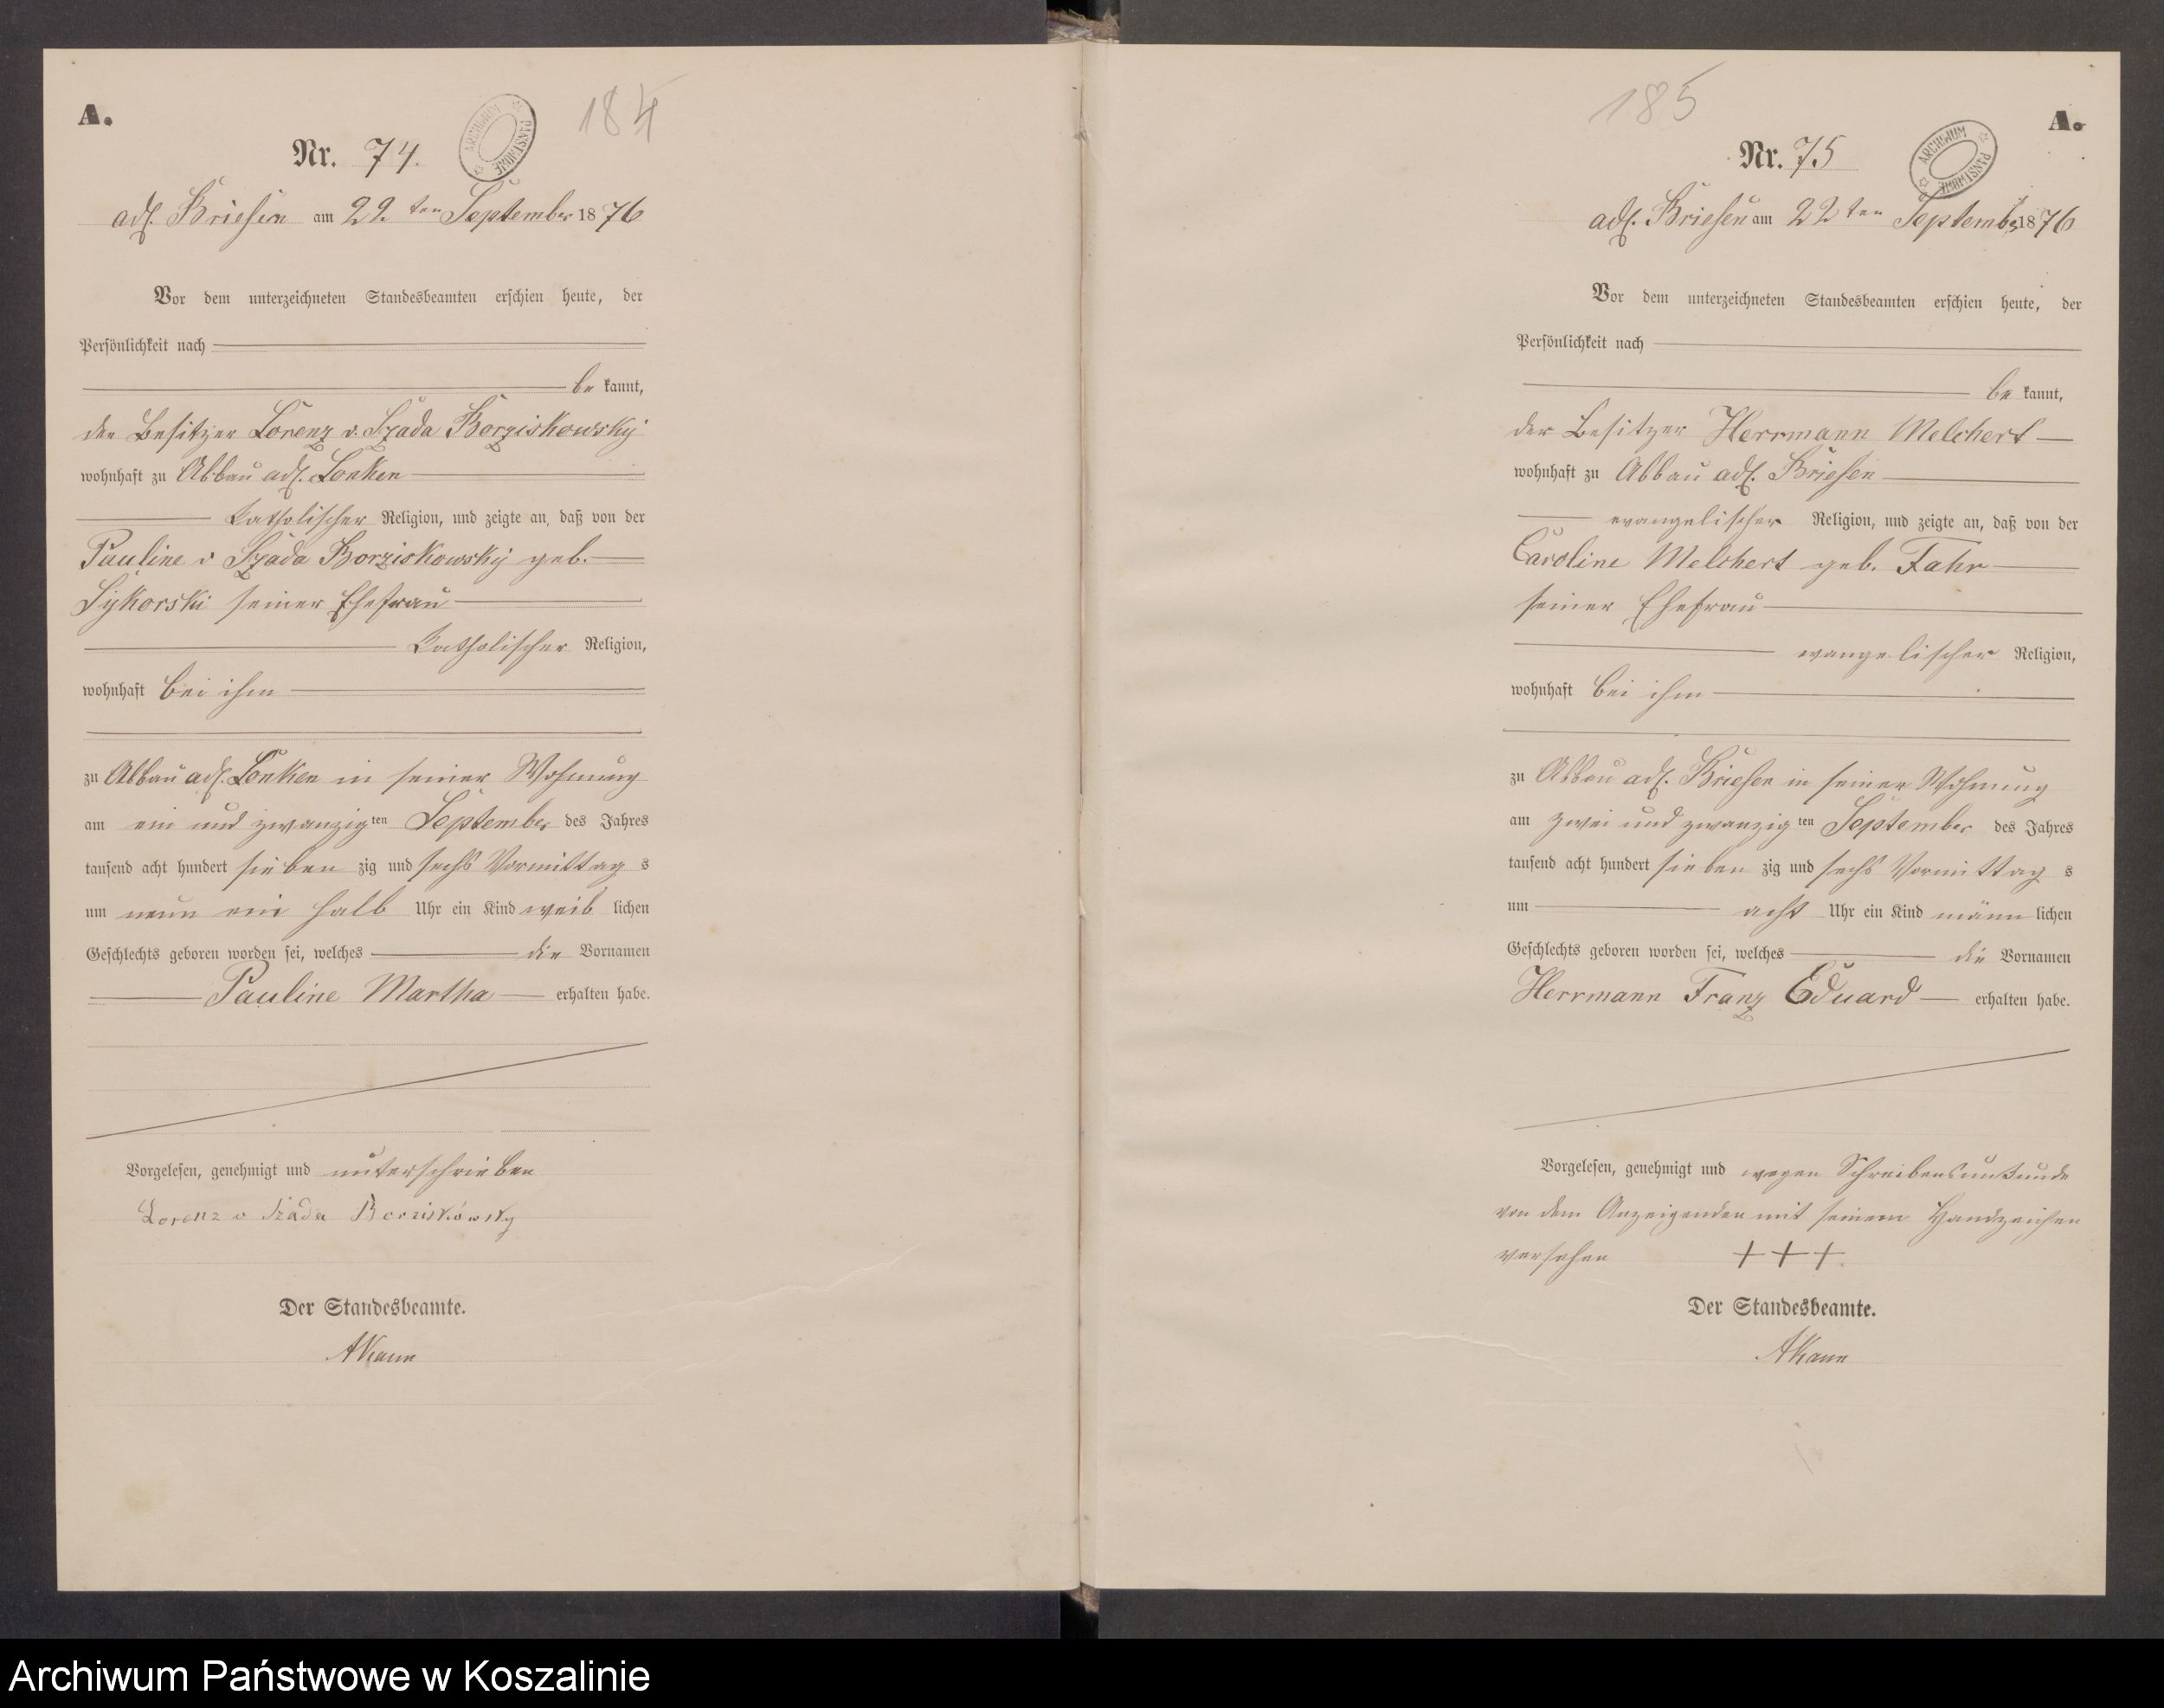 A.
184
Nr. 74.
ARCHIWUM PAŃSTWOWE
adl. Briesen am 22ten September 1876
Vor dem unterzeichneten Standesbeamten erschien heute, der
Persönlichkeit nach
be kannt,
der Besitzer Lorenz v. Szada Borziskowsky
wohnhaft zu Abbau adl. Lonken
katholischer Religion, und zeigte an, daß von der
Pauline v Szada Borziskowsky geb.
Sykorski seiner Ehefrau
katholischer Religion,
wohnhaft bei ihm
zu Abbau adl. Lonken in seiner Wohnung
am ein und zwanzig ten September des Jahres
tausend acht hundert sieben zig und sechs Vormittag s
um neun ein halb Uhr ein Kind weib lichen
Geschlechts geboren worden sei, welches die Vornamen
Pauline Martha erhalten habe.
Vorgelesen, genehmigt und unterschrieben
Lorenz v Szada Borziskowsky
Der Standesbeamte.
AKann
185
A.
Nr. 75
ARCHIWUM PAŃSTWOWE
adl. Briesen am 22ten September 1876
Vor dem unterzeichneten Standesbeamten erschien heute, der
Persönlichkeit nach
be kannt,
der Besitzer Herrmann Melchert
wohnhaft zu Abbau adl. Briesen
evangelischer Religion, und zeigte an, daß von der
Caroline Melchert geb. Fahr
seiner Ehefrau
evangelischer Religion,
wohnhaft bei ihm
zu Abbau adl. Briesen in seiner Wohnung
am zwei und zwanzig ten September des Jahres
tausend acht hundert sieben zig und sechs Vormittag s
um acht Uhr ein Kind männ lichen
Geschlechts geboren worden sei, welches die Vornamen
Herrmann Franz Eduard erhalten habe.
Vorgelesen, genehmigt und wegen Schreibensunkunde
von dem Anzeigenden mit seinem Handzeichen
versehen +++
Der Standesbeamte.
AKann
Archiwum Państwowe w Koszalinie